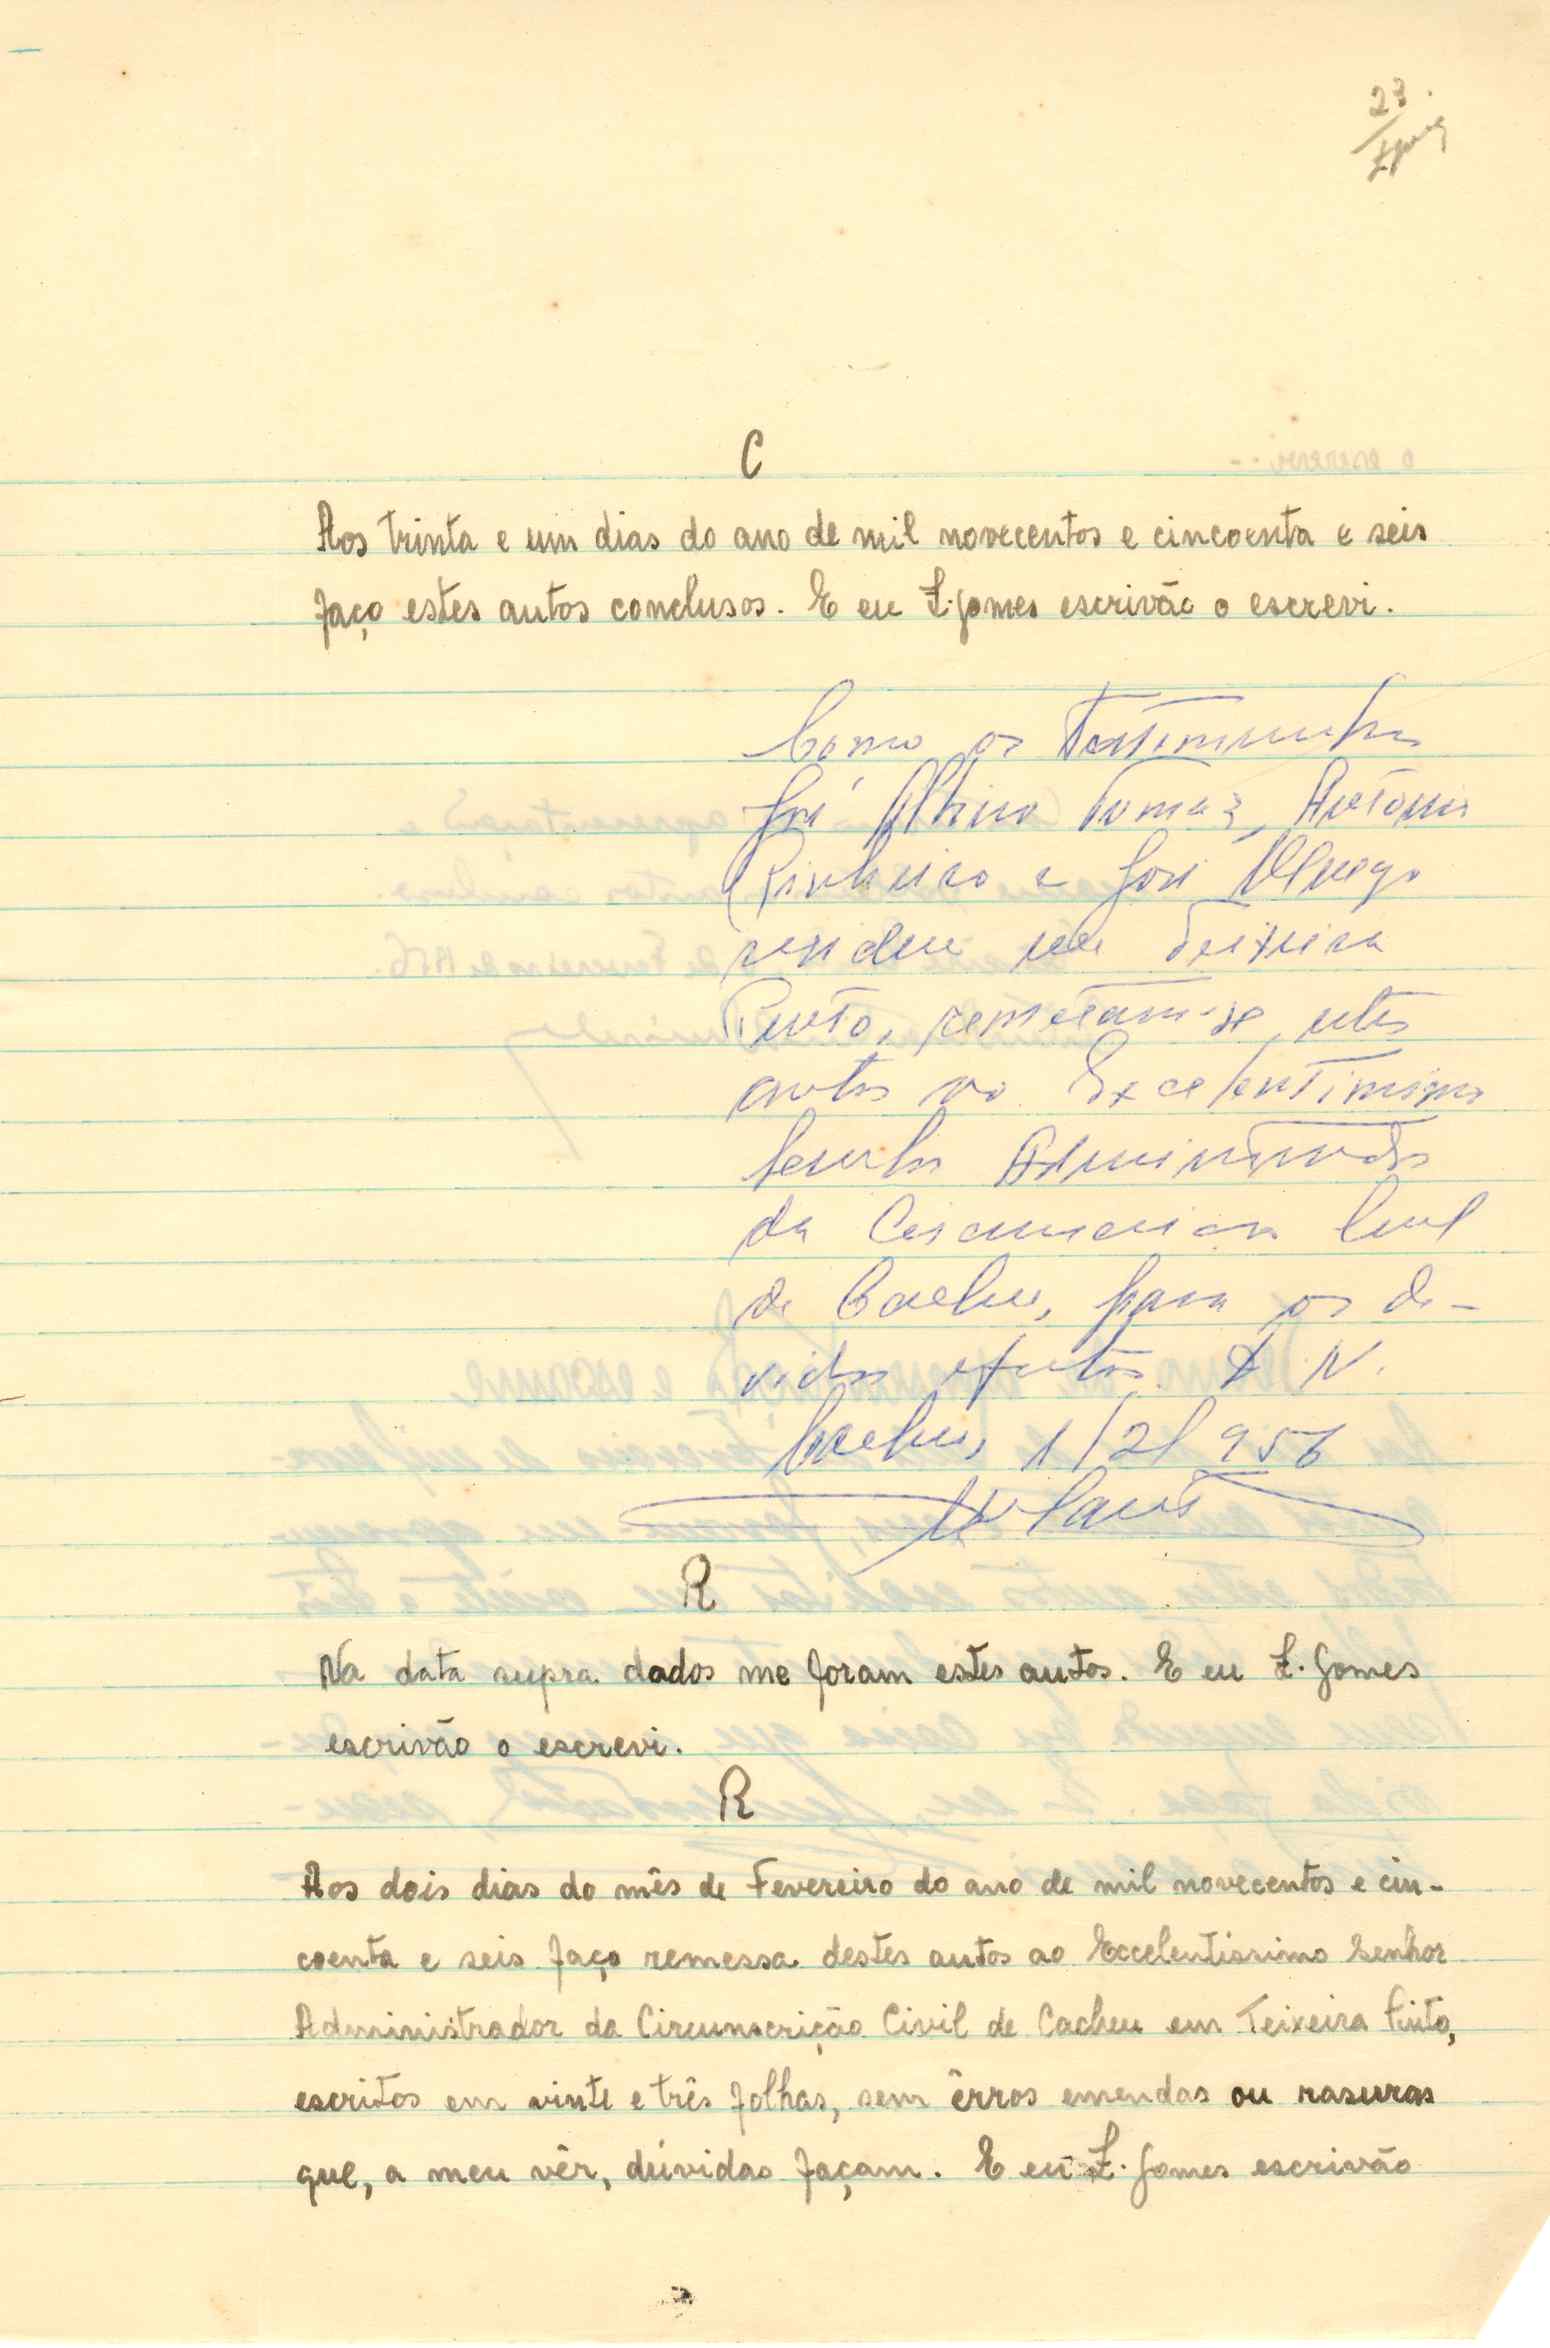 23.
C
Aos trinta e um dias do ano de mil novecentos e cincoenta e seis
faço estes autos conclusos. E eu L. Gomes escrivão o escrevi.
Como as testemunhas
José Albino Tomaz, António
Pinheiro e José
residem em Teixeira
Pinto, remetam-se estes
autos ao Excelentissimo
Senhor Administrador
da Circunscrição Civil
de Cacheu, para os de-
vidos efeitos. D. N.
Cacheu, 1/2/956
R
Na data supra dados me foram estes autos. E eu L. Gomes
escrivão o escrevi.
R
Aos dois dias do mês de Fevereiro do ano de mil novecentos e cin-
coenta e seis faço remessa destes autos ao Excelentissimo Senhor
Administrador da Circunscrição Civil de Cacheu em Teixeira Pinto,
escritos em vinte e três folhas, sem êrros emendas ou rasuras
que, a meu vêr, dúvidas façam. E eu L. Gomes escrivão